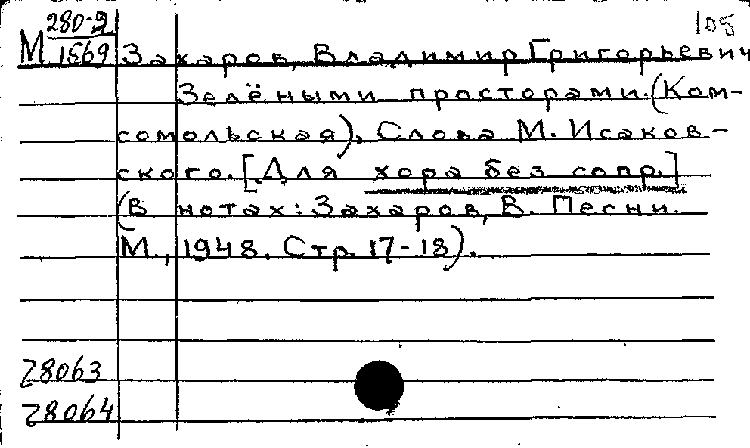 280-9 108
М 1569 Захаров, Владимир Григорьевич
Зелёными просторами. (Ком-
сомольская). Слова М. Исаков-
ского. [Для хора без сопр.]
(В нотах: Захаров, В. Песни.
М., 1948. Стр. 17-18).
28063
28064